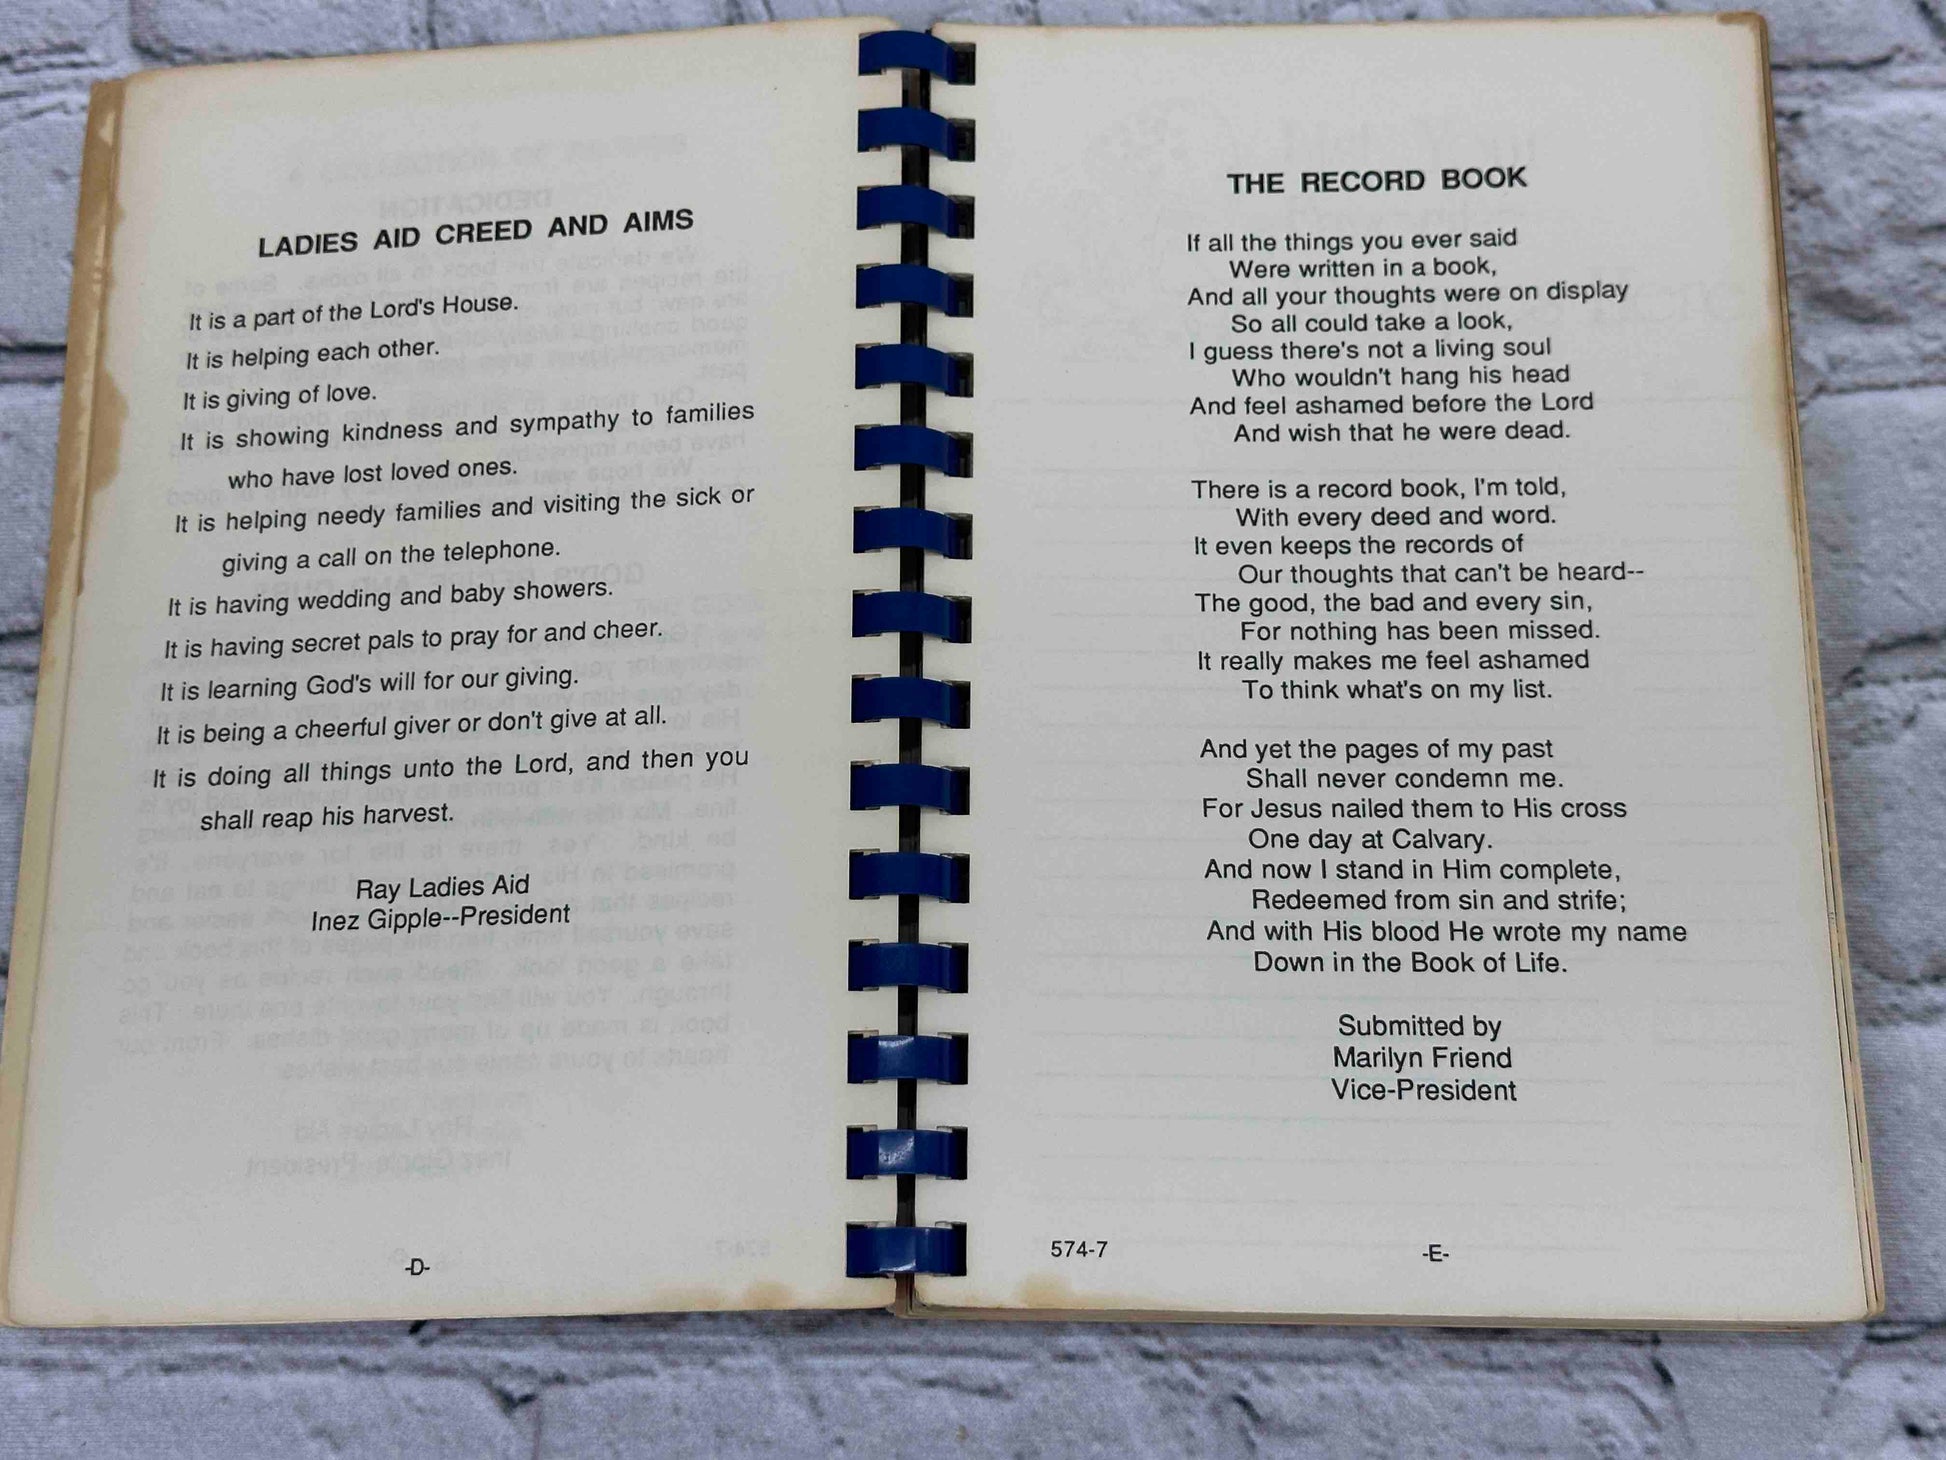 LADIES AID CREED AND AIMS
It is a part of the Lord's House.
It is helping each other.
It is giving of love.
It is showing kindness and sympathy to families
who have lost loved ones.
It is helping needy families and visiting the sick or
giving a call on the telephone.
It is having wedding and baby showers.
It is having secret pals to pray for and cheer.
It is learning God's will for our giving.
It is being a cheerful giver or don't give at all.
It is doing all things unto the Lord, and then you
shall reap his harvest.
Ray Ladies Aid
Inez Gipple--President
-D-
THE RECORD BOOK
If all the things you ever said
Were written in a book,
And all your thoughts were on display
So all could take a look,
I guess there's not a living soul
Who wouldn't hang his head
And feel ashamed before the Lord
And wish that he were dead.
There is a record book, I'm told,
With every deed and word.
It even keeps the records of
Our thoughts that can't be heard--
The good, the bad and every sin,
For nothing has been missed.
It really makes me feel ashamed
To think what's on my list.
And yet the pages of my past
Shall never condemn me.
For Jesus nailed them to His cross
One day at Calvary.
And now I stand in Him complete,
Redeemed from sin and strife;
And with His blood He wrote my name
Down in the Book of Life.
Submitted by
Marilyn Friend
Vice-President
574-7
-E-